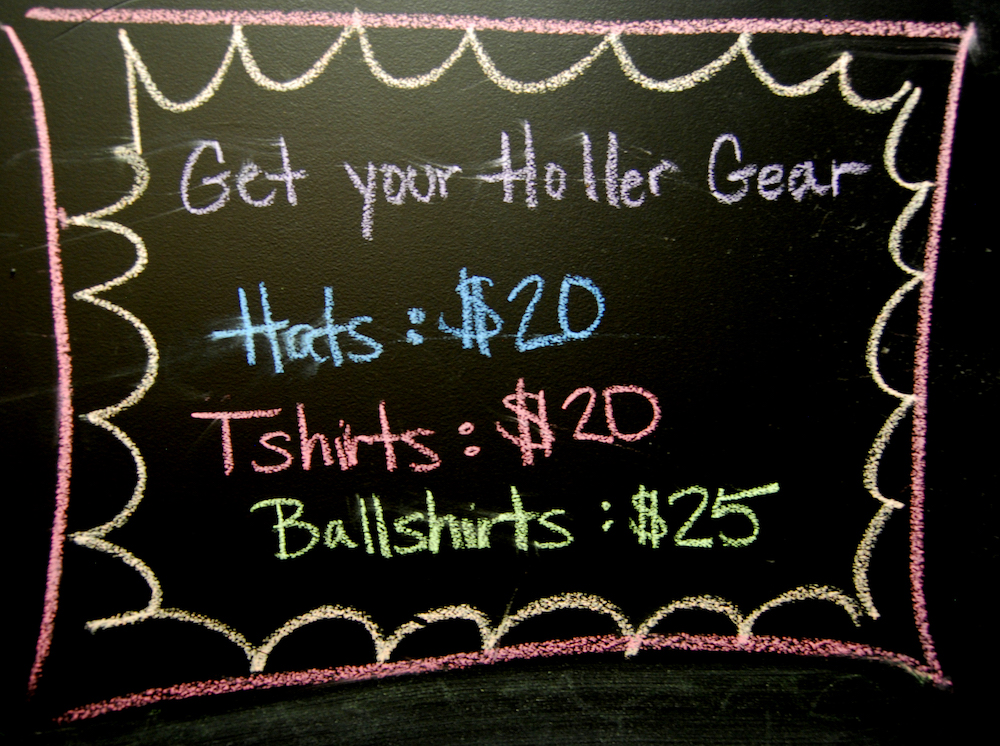 Get your Holler Gear
Hats : $20
Tshirts : $20
Ballshirts : $25